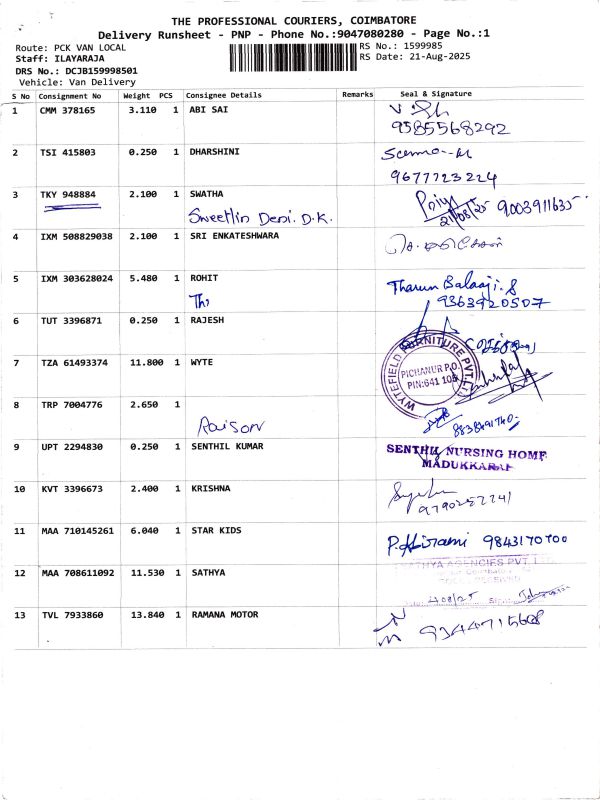 THE PROFESSIONAL COURIERS, COIMBATORE
Delivery Runsheet - PNP - Phone No.:9047080280 - Page No.:1
Route: PCK VAN LOCAL
RS No.: 1599985
Staff: ILAYARAJA
RS Date: 21-Aug-2025
DRS No.: DCJB159998501
Vehicle: Van Delivery
S No Consignment No Weight PCS Consignee Details Remarks Seal & Signature
1 CMM 378165 3.110 1 ABI SAI
9585568292
2 TSI 415803 0.250 1 DHARSHINI
9677723224
3 TKY 948884 2.100 1 SWATHA
Sweetlin Deni. D.K.
Priya
21/08/25 9003911635
4 IXM 508829038 2.100 1 SRI ENKATESHWARA
5 IXM 303628024 5.480 1 ROHIT
Tharun Balaaji. S
9363920507
6 TUT 3396871 0.250 1 RAJESH
7 TZA 61493374 11.800 1 WYTE
WYTEFIELD FURNITURE PVT. LTD
PICHANUR P.O.
PIN:641 105
8 TRP 7004776 2.650 1
Raison
9 UPT 2294830 0.250 1 SENTHIL KUMAR
SENTHIL NURSING HOME
MADUKKARAI
10 KVT 3396673 2.400 1 KRISHNA
9790252241
11 MAA 710145261 6.040 1 STAR KIDS
P. Abirami 9843170700
12 MAA 708611092 11.530 1 SATHYA
SATHYA AGENCIES PVT. LTD
13 TVL 7933860 13.840 1 RAMANA MOTOR
9344715608